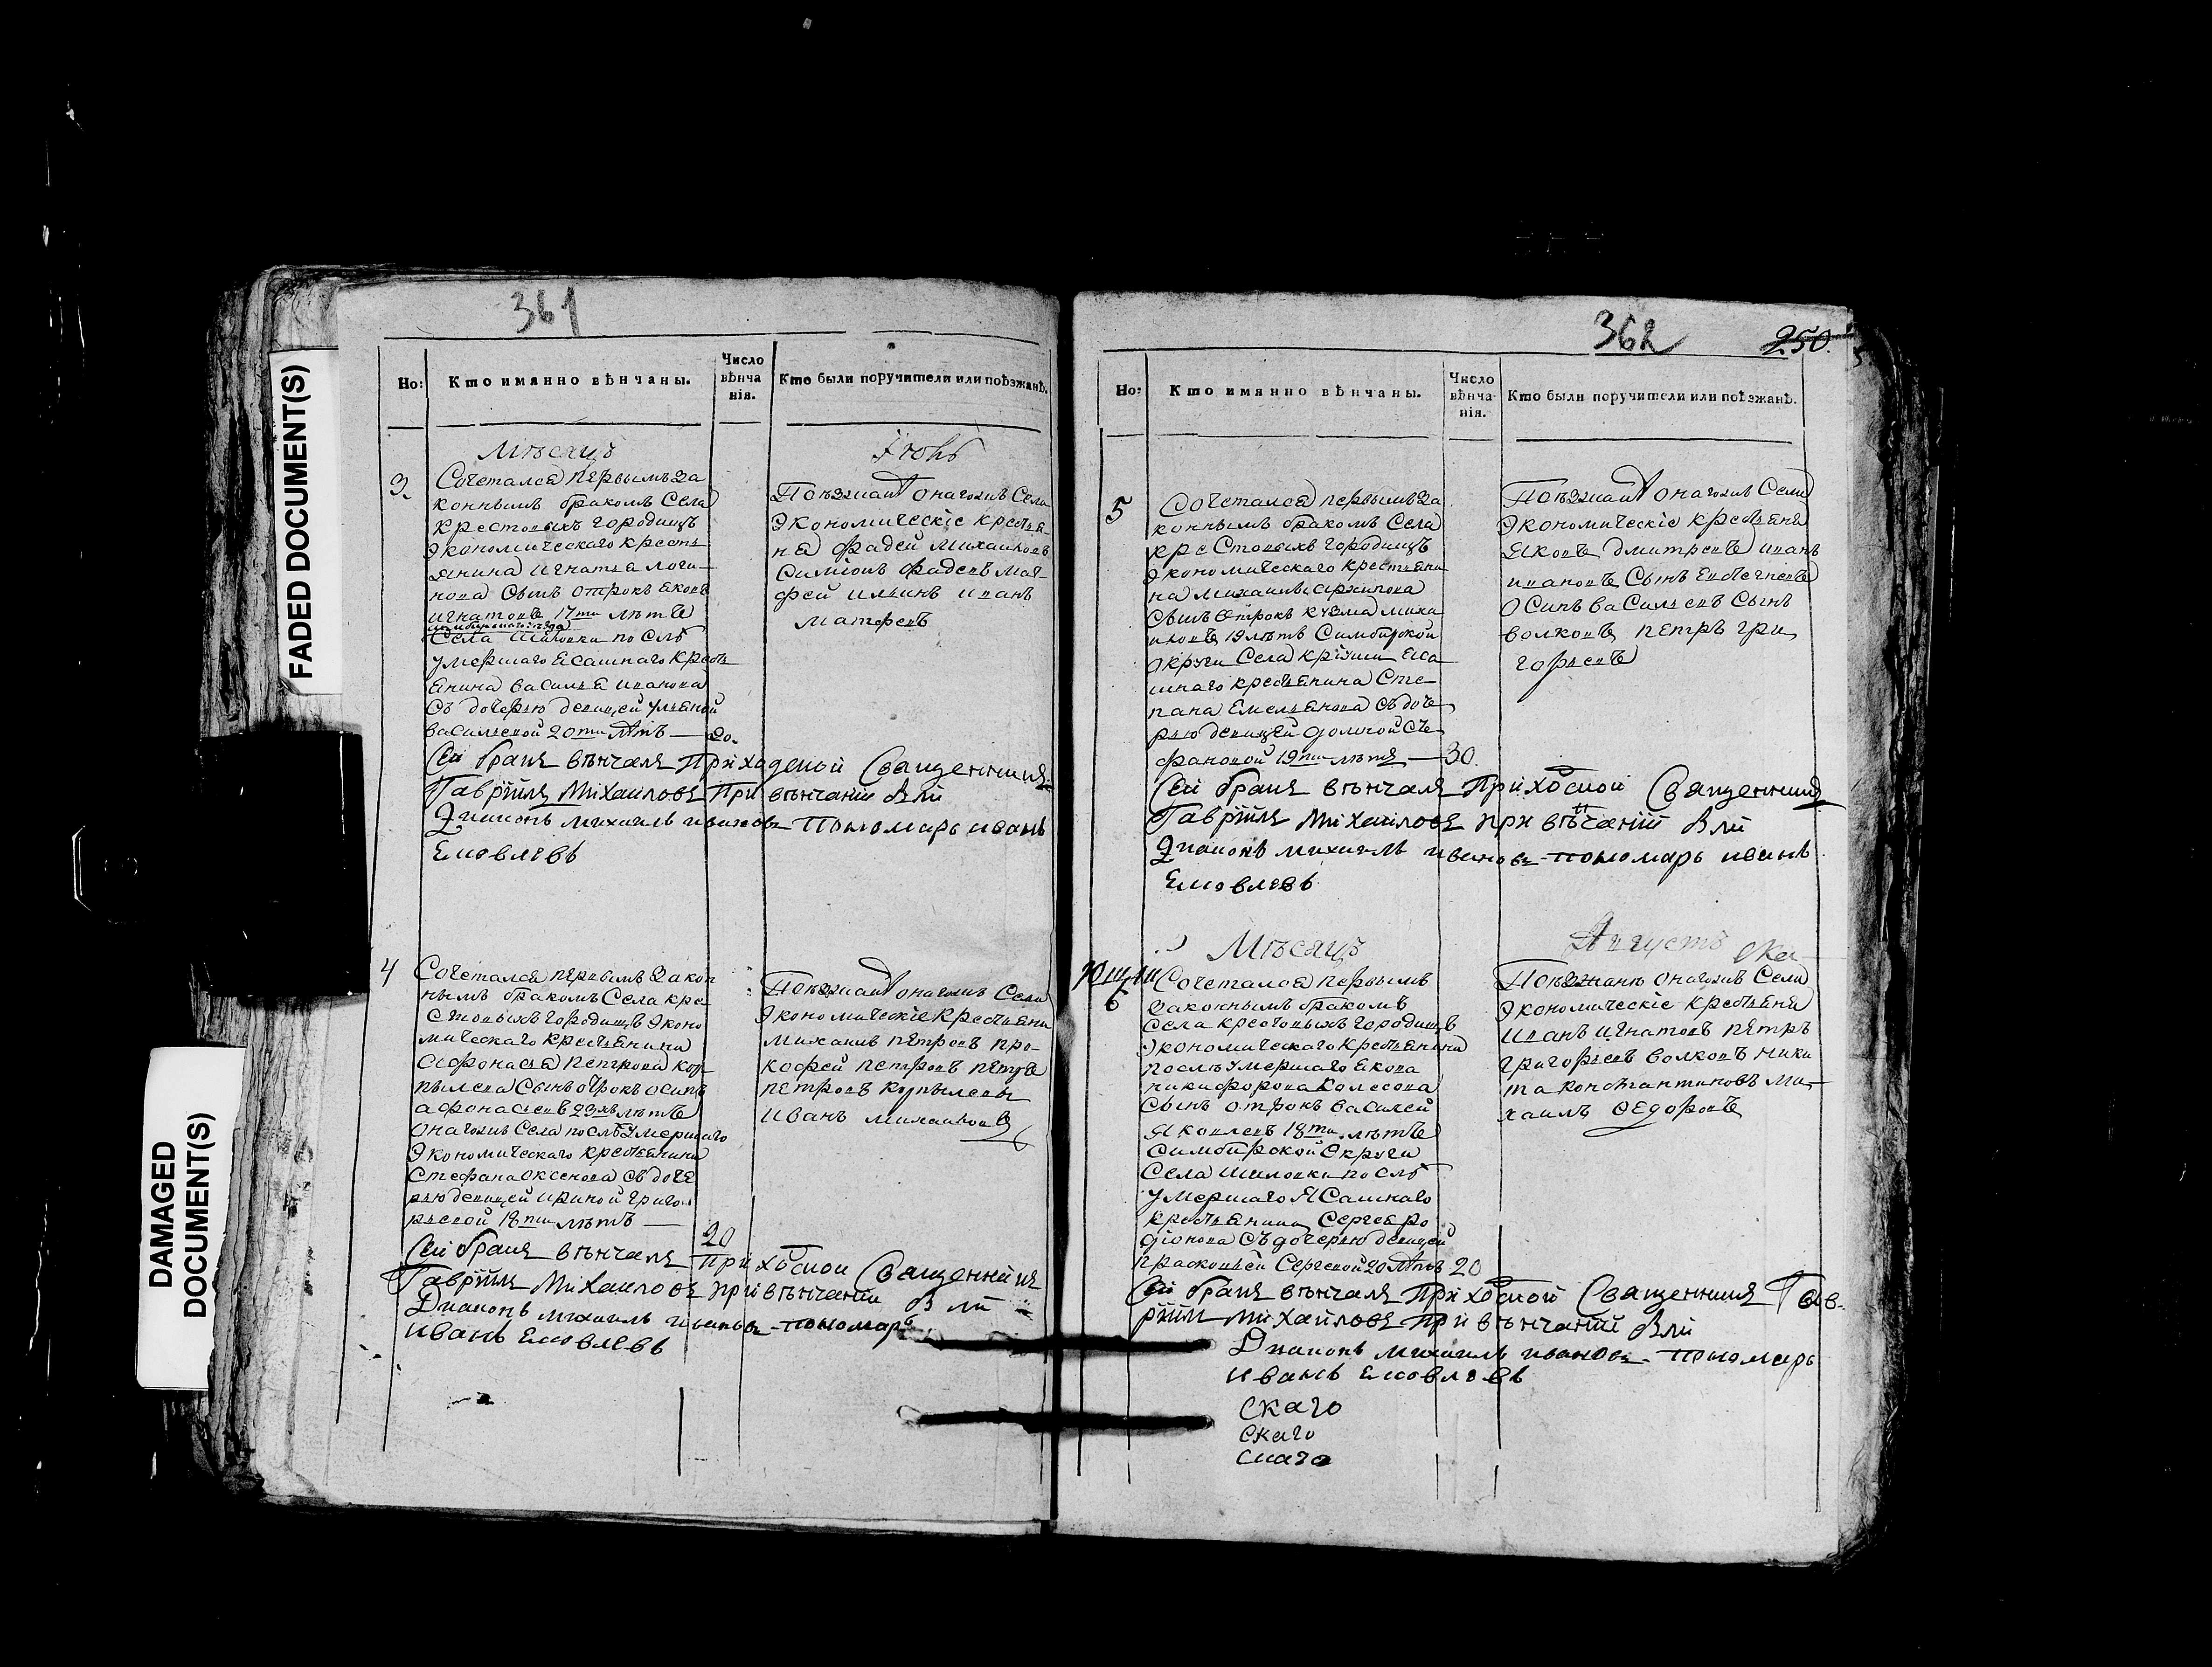 FADED DOCUMENT(S)
DAMAGED
DOCUMENT(S)
361
Но:
Кто имянно вѣнчаны.
Число
вѣнча
нія.
Кто были поручители или поѣзжанѣ.
Мѣсяцъ
Іюнь
3.
Сочетался первымъ за
коннымъ бракомъ Села
Крестовыхъ городищъ
Экономическаго кресть
янина Игнатья логи
нова Сынъ отрокъ Яковъ
Игнатовъ 17ти лѣтъ
Села Шиловки послѣ
умершаго Ясашнаго кресть
янина василья иванова
Съ дочерью девицей ульяной
васильевой 20ти лѣтъ — 20.
Поѣзжанѣ онагожъ Села
Экономическіе крестья
на фадей Михаиловъ
Симіонъ фадеевъ мат
фей ильинъ иванъ
матфеевъ
Сей бракъ вѣнчалъ Приходской Священникъ
Гавріилъ Михаиловъ При вѣнчаніи были
Диаконъ михаилъ ивановъ пономарь иванъ
Яковлевъ
4
Сочетался первымъ закон
нымъ бракомъ Села кре
стовыхъ городищъ Эконо
мическаго крестьянина
Афонасья Петрова кур
пылева Сынъ отрокъ осипъ
афонасьевъ 23хъ лѣтъ
онагожъ Села послѣ умершаго
Экономическаго крестьянина
Стефана Оксенова съ доче
рью девицей ириной григо
рьевой 18ти лѣтъ —
20
Поѣзжанѣ онагожъ Села
Экономическіе Крестьяни
Михаилъ петровъ про
кофей петровъ петръ
петровъ курпылевы
Иванъ михаиловъ
Сей бракъ вѣнчалъ Приходской Священникъ
Гавріилъ Михаиловъ при вѣнчаніи были
Диаконъ михаилъ ивановъ пономарь
иванъ Яковлевъ
362
250.
Но:
Кто имянно вѣнчаны.
Число
вѣнча
нія.
Кто были поручители или поѣзжанѣ.
5
Сочетался первымъ за
коннымъ бракомъ Села
крестовыхъ городищъ
Экономическаго крестьяни
на михаила архипова
Сынъ отрокъ кузма миха
иловъ 19 лѣтъ Симбирской
округи Села кріуши Яса
шнаго крестьянина Сте
пана Емельянова съ доче
рью девицей домной сте
фановой 19ти лѣтъ — 30.
Поѣзжанѣ онагожъ Села
Экономическіе крестьяня
Яковъ дмитревъ иванъ
ивановъ Сынъ
Осипъ васильевъ Сынъ
волковъ петръ гри
горьевъ
Сей бракъ вѣнчалъ Приходской Священникъ
Гавріилъ Михаиловъ при вѣнчаніи были
Диаконъ михаилъ ивановъ пономарь иванъ
Яковлевъ
Мѣсяцъ
Августъ
6
Сочетался первымъ
законнымъ бракомъ
Села крестовыхъ городищъ
Экономическаго Крестьянина
послѣ умершаго Якова
никифорова Колесова
Сынъ отрокъ василей
Яковлевъ 18ти лѣтъ
Симбирской Округи
Села Шиловки послѣ
умершаго Ясашнаго
крестьянина Сергея ро
діонова съ дочерью девицей
прасковьей Сергевой 20 лѣтъ 20
Поѣзжанѣ онагожъ Села
Экономическіе крестьяня
Иванъ игнатовъ петръ
григорьевъ волковъ ники
та константиновъ ми
хаилъ Федоровъ
Сей бракъ вѣнчалъ Приходской Священникъ Гав
ріилъ Михаиловъ При вѣнчаніи были
Диаконъ михаилъ ивановъ пономарь
иванъ Яковлевъ
скаго
скаго
скаго